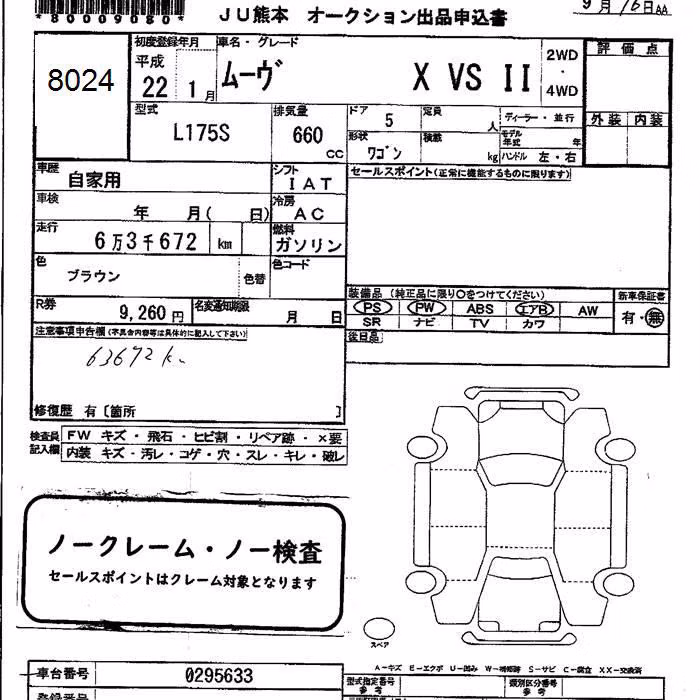 *80009080*
JU熊本 オークション出品申込書
9月16日
8024
初度登録年月
平成
22 1月
車名・グレード
ムーヴ X VS II
2WD
・
4WD
評価点
外装 内装
型式
L175S
排気量
660
cc
ドア
5
定員
人
ディーラー・並行
形状
ワゴン
積載
kg
モデル年式 年
ハンドル 左・右
車歴
自家用
シフト
IAT
セールスポイント(正常に機能するものに限ります)
車検
年 月( 日)
冷房
AC
走行
6万3千672 km
燃料
ガソリン
色
ブラウン
色替
色コード
R券
9,260円
名変通知期限
月 日
装備品 (純正品に限り○をつけてください)
PS PW ABS エアB AW
SR ナビ TV カワ
新車保証書
有・無
後日品
注意事項申告欄(不具合内容等は具体的に記入して下さい)
63672k
修復歴 有〔箇所 〕
検査員記入欄
FW キズ・飛石・ヒビ割・リペア跡・×要
内装 キズ・汚レ・コゲ・穴・スレ・キレ・破レ
ノークレーム・ノー検査
セールスポイントはクレーム対象となります
スペア
A-キズ E-エクボ U-凹み W-補修跡 S-サビ C-腐食 XX-交換済
車台番号
0295633
型式指定番号
参考
類別区分番号
参考
登録番号